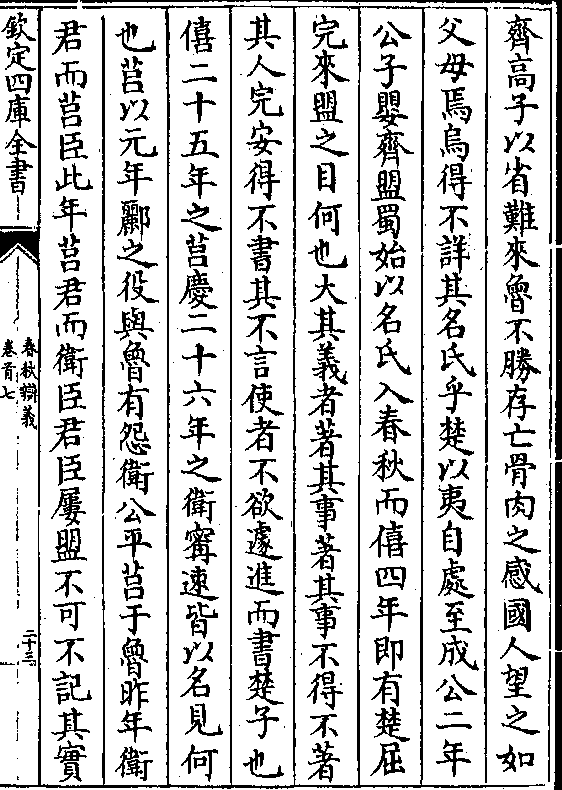 齊高子以省難來魯不勝存亡骨肉之感國人望之如
父母焉烏得不詳其名氏乎楚以夷自處至成公二年
公子嬰齊盟蜀始以名氏入春秋而僖四年即有楚屈
完來盟之目何也大其義者著其事著其事不得不著
其人完安得不書其不言使者不欲遽進而書楚子也
僖二十五年之莒慶二十六年之衛甯速皆以名見何
也莒以元年酈之役與魯有怨衛公平莒于魯昨年衛
君而莒臣此年莒君而衛臣君臣屢盟不可不記其實
欽定四庫全書
春秋辯義
卷首七
二十三